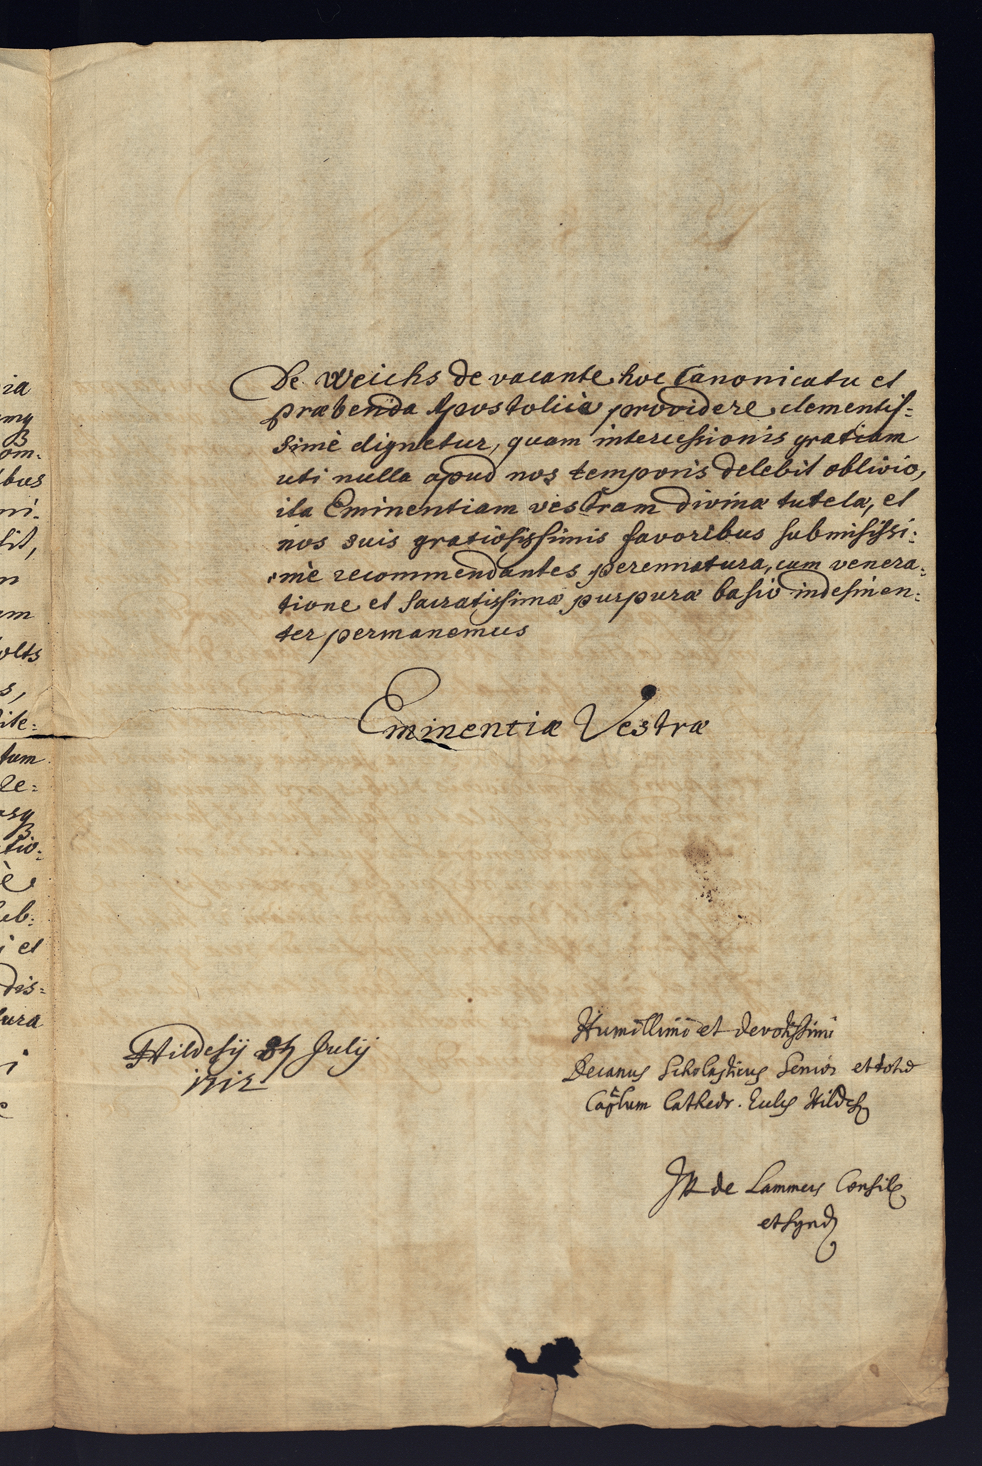 De Weichs de vacante hoc Canonicatu et
præbenda Apostolicè providere clementis=
simè dignetur, quam intercessionis gratiam
uti nulla apud nos temporis delebit oblivio,
ita Eminentiam vestram divinæ tutelæ, et
nos suis gratiosissimis favoribus submississi=
mè recommendantes perennatura, cum venera=
tione et sacratissimæ purpuræ basio indesinen=
ter permanemus
Eminentiæ Vestræ
Hildesij July
1712
Humillimi et devotissimi
Decanus Scholasticus Senior et totum
Caplum Cathedr. Eccles Hildes
de Lammers Consil
et Synd